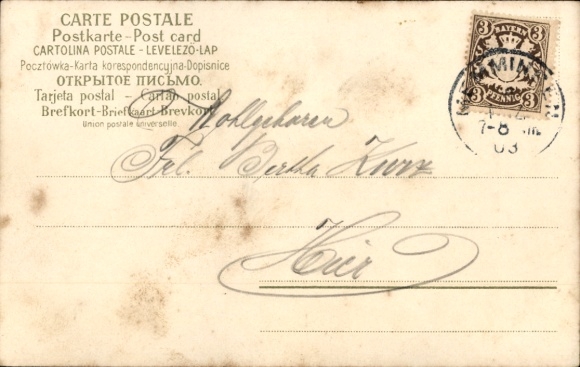 CARTE POSTALE
Postkarte - Post card
CARTOLINA POSTALE - LEVELEZÖ-LAP
Pocztówka-Karta korespondencyjna-Dopisnice
ОТКРЫТОЕ ПИСЬМО.
Tarjeta postal - Cartão postal
Brefkort-Briefkaart-Brevkort
Union postale universelle.
3 BAYERN 3
3 PFENNIG 3
MEMMINGEN
7-8
03
Wohlgeboren
Frl. Bertha Kurz
Hier